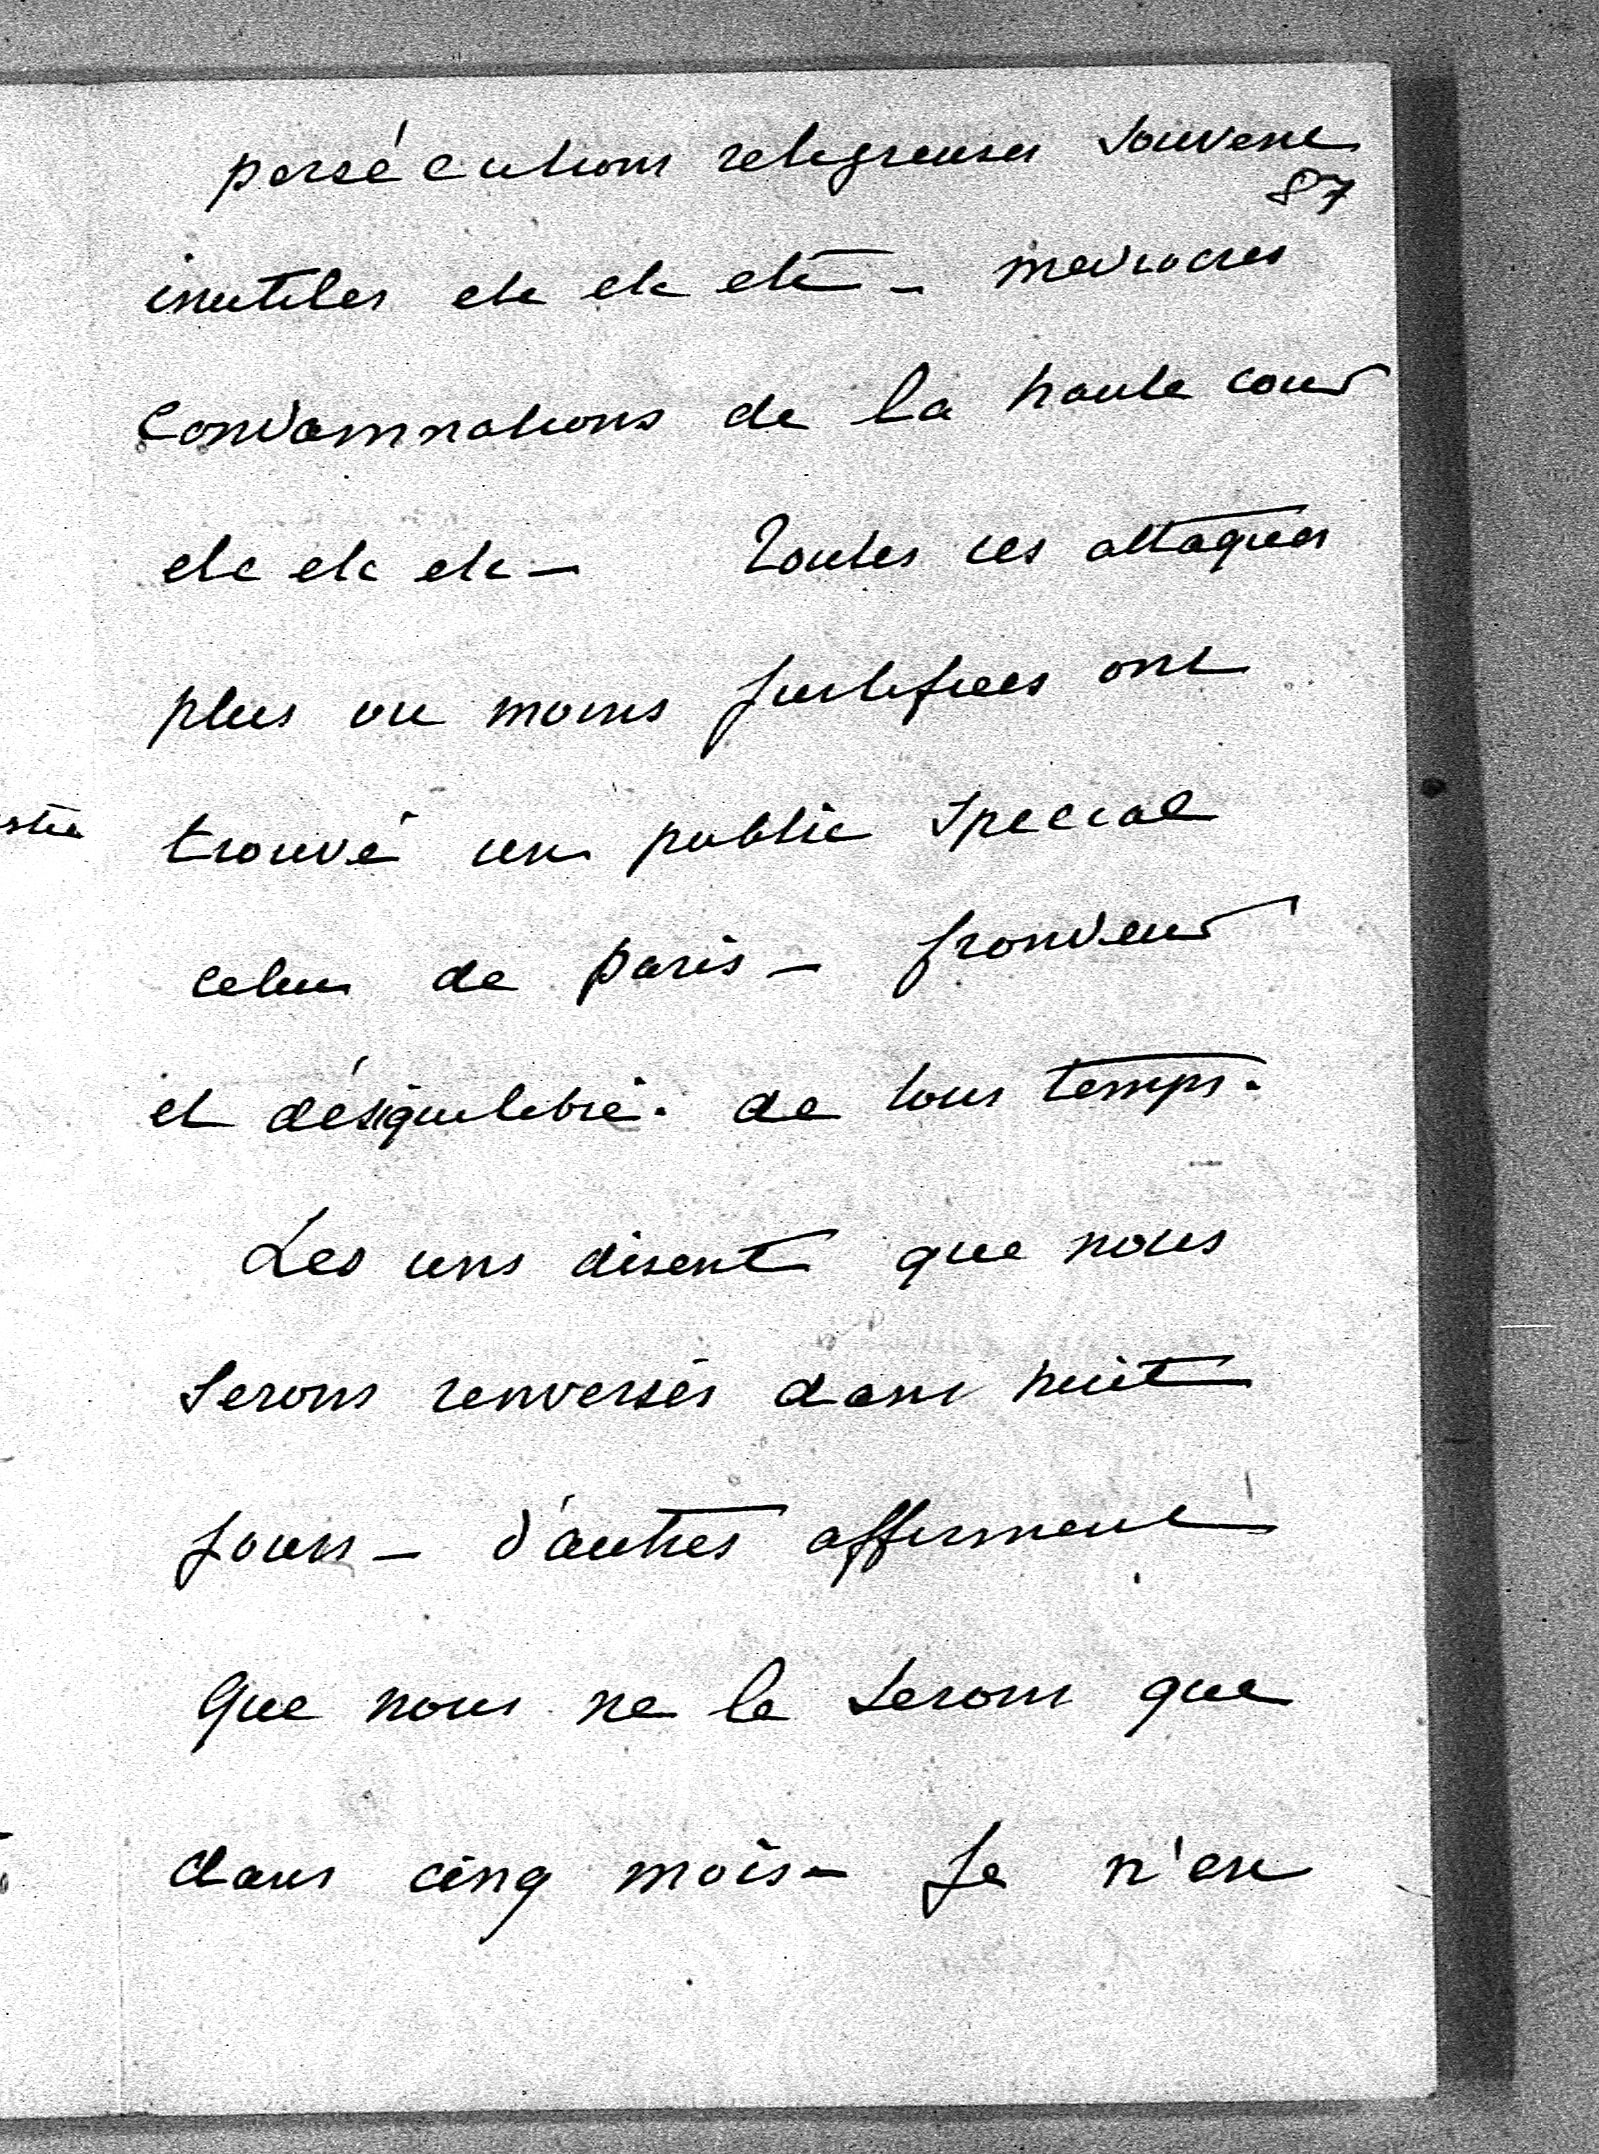 persécutions religieuses souvent
87
inutiles etc etc etc – mediocres
Condamnations de la haute cour
etc etc etc – Toutes ces attaques
plus ou moins justifiees ont
trouvé un public special
celui de paris – frondeur
et déséquilibré. de tous temps.
Les uns disent que nous
serons renversés dans huit
jours – d'autres affirment
que nous ne le serons que
dans cinq mois – Je n'en